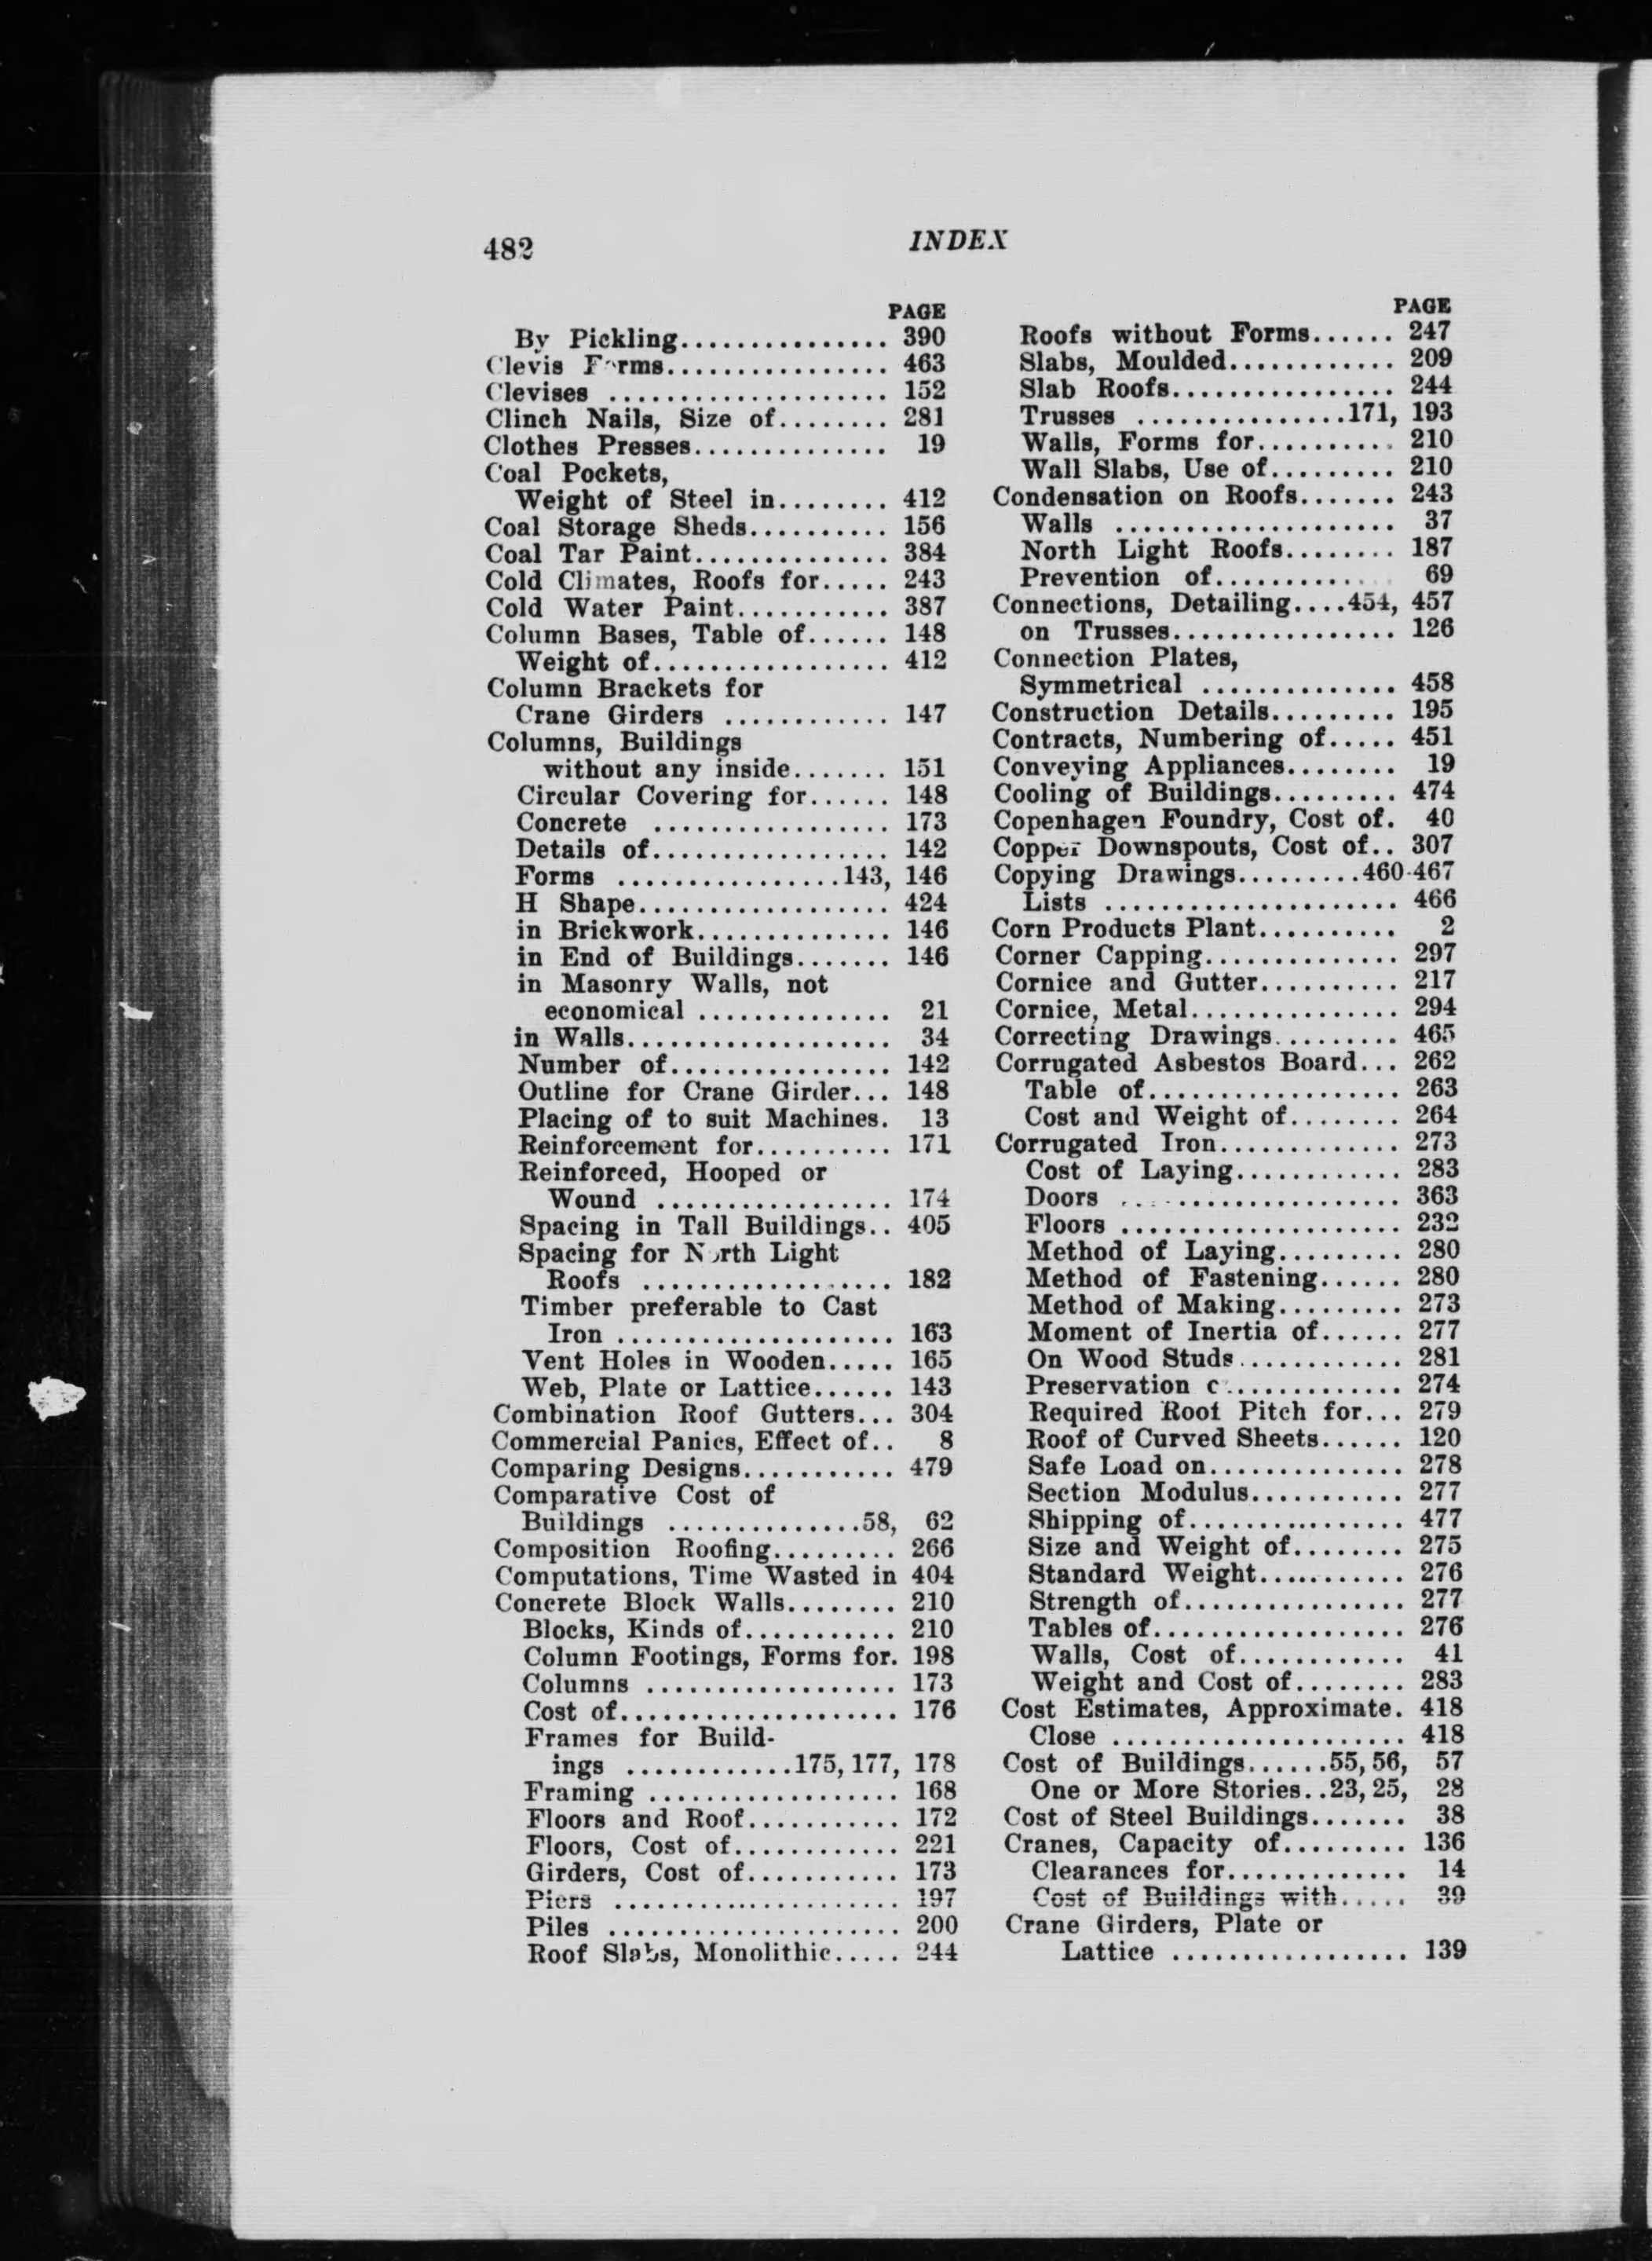 482
INDEX
PAGE
By Pickling............... 390
Clevis Forms................ 463
Clevises .................... 152
Clinch Nails, Size of........ 281
Clothes Presses.............. 19
Coal Pockets,
Weight of Steel in........ 412
Coal Storage Sheds.......... 156
Coal Tar Paint.............. 384
Cold Climates, Roofs for..... 243
Cold Water Paint........... 387
Column Bases, Table of...... 148
Weight of................. 412
Column Brackets for
Crane Girders ............ 147
Columns, Buildings
without any inside....... 151
Circular Covering for...... 148
Concrete ................. 173
Details of................. 142
Forms ................143, 146
H Shape.................. 424
in Brickwork.............. 146
in End of Buildings....... 146
in Masonry Walls, not
economical .............. 21
in Walls................... 34
Number of................ 142
Outline for Crane Girder... 148
Placing of to suit Machines. 13
Reinforcement for.......... 171
Reinforced, Hooped or
Wound ................. 174
Spacing in Tall Buildings.. 405
Spacing for North Light
Roofs .................. 182
Timber preferable to Cast
Iron .................... 163
Vent Holes in Wooden..... 165
Web, Plate or Lattice...... 143
Combination Roof Gutters... 304
Commercial Panics, Effect of.. 8
Comparing Designs........... 479
Comparative Cost of
Buildings ..............58, 62
Composition Roofing......... 266
Computations, Time Wasted in 404
Concrete Block Walls........ 210
Blocks, Kinds of........... 210
Column Footings, Forms for. 198
Columns .................. 173
Cost of.................... 176
Frames for Build-
ings ............175, 177, 178
Framing .................. 168
Floors and Roof........... 172
Floors, Cost of............ 221
Girders, Cost of........... 173
Piers .................... 197
Piles ..................... 200
Roof Slabs, Monolithic..... 244
PAGE
Roofs without Forms...... 247
Slabs, Moulded............ 209
Slab Roofs................ 244
Trusses ...............171, 193
Walls, Forms for.......... 210
Wall Slabs, Use of......... 210
Condensation on Roofs....... 243
Walls .................... 37
North Light Roofs........ 187
Prevention of............ 69
Connections, Detailing....454, 457
on Trusses................ 126
Connection Plates,
Symmetrical .............. 458
Construction Details......... 195
Contracts, Numbering of..... 451
Conveying Appliances........ 19
Cooling of Buildings......... 474
Copenhagen Foundry, Cost of. 40
Copper Downspouts, Cost of.. 307
Copying Drawings.........460-467
Lists ..................... 466
Corn Products Plant.......... 2
Corner Capping.............. 297
Cornice and Gutter.......... 217
Cornice, Metal............... 294
Correcting Drawings......... 465
Corrugated Asbestos Board... 262
Table of.................. 263
Cost and Weight of........ 264
Corrugated Iron............. 273
Cost of Laying............ 283
Doors ................... 363
Floors .................... 232
Method of Laying......... 280
Method of Fastening...... 280
Method of Making......... 273
Moment of Inertia of...... 277
On Wood Studs............ 281
Preservation ............. 274
Required Roof Pitch for... 279
Roof of Curved Sheets...... 120
Safe Load on.............. 278
Section Modulus........... 277
Shipping of............... 477
Size and Weight of........ 275
Standard Weight........... 276
Strength of................ 277
Tables of.................. 276
Walls, Cost of............ 41
Weight and Cost of........ 283
Cost Estimates, Approximate. 418
Close ..................... 418
Cost of Buildings......55, 56, 57
One or More Stories..23, 25, 28
Cost of Steel Buildings....... 38
Cranes, Capacity of......... 136
Clearances for............. 14
Cost of Buildings with..... 39
Crane Girders, Plate or
Lattice ................. 139